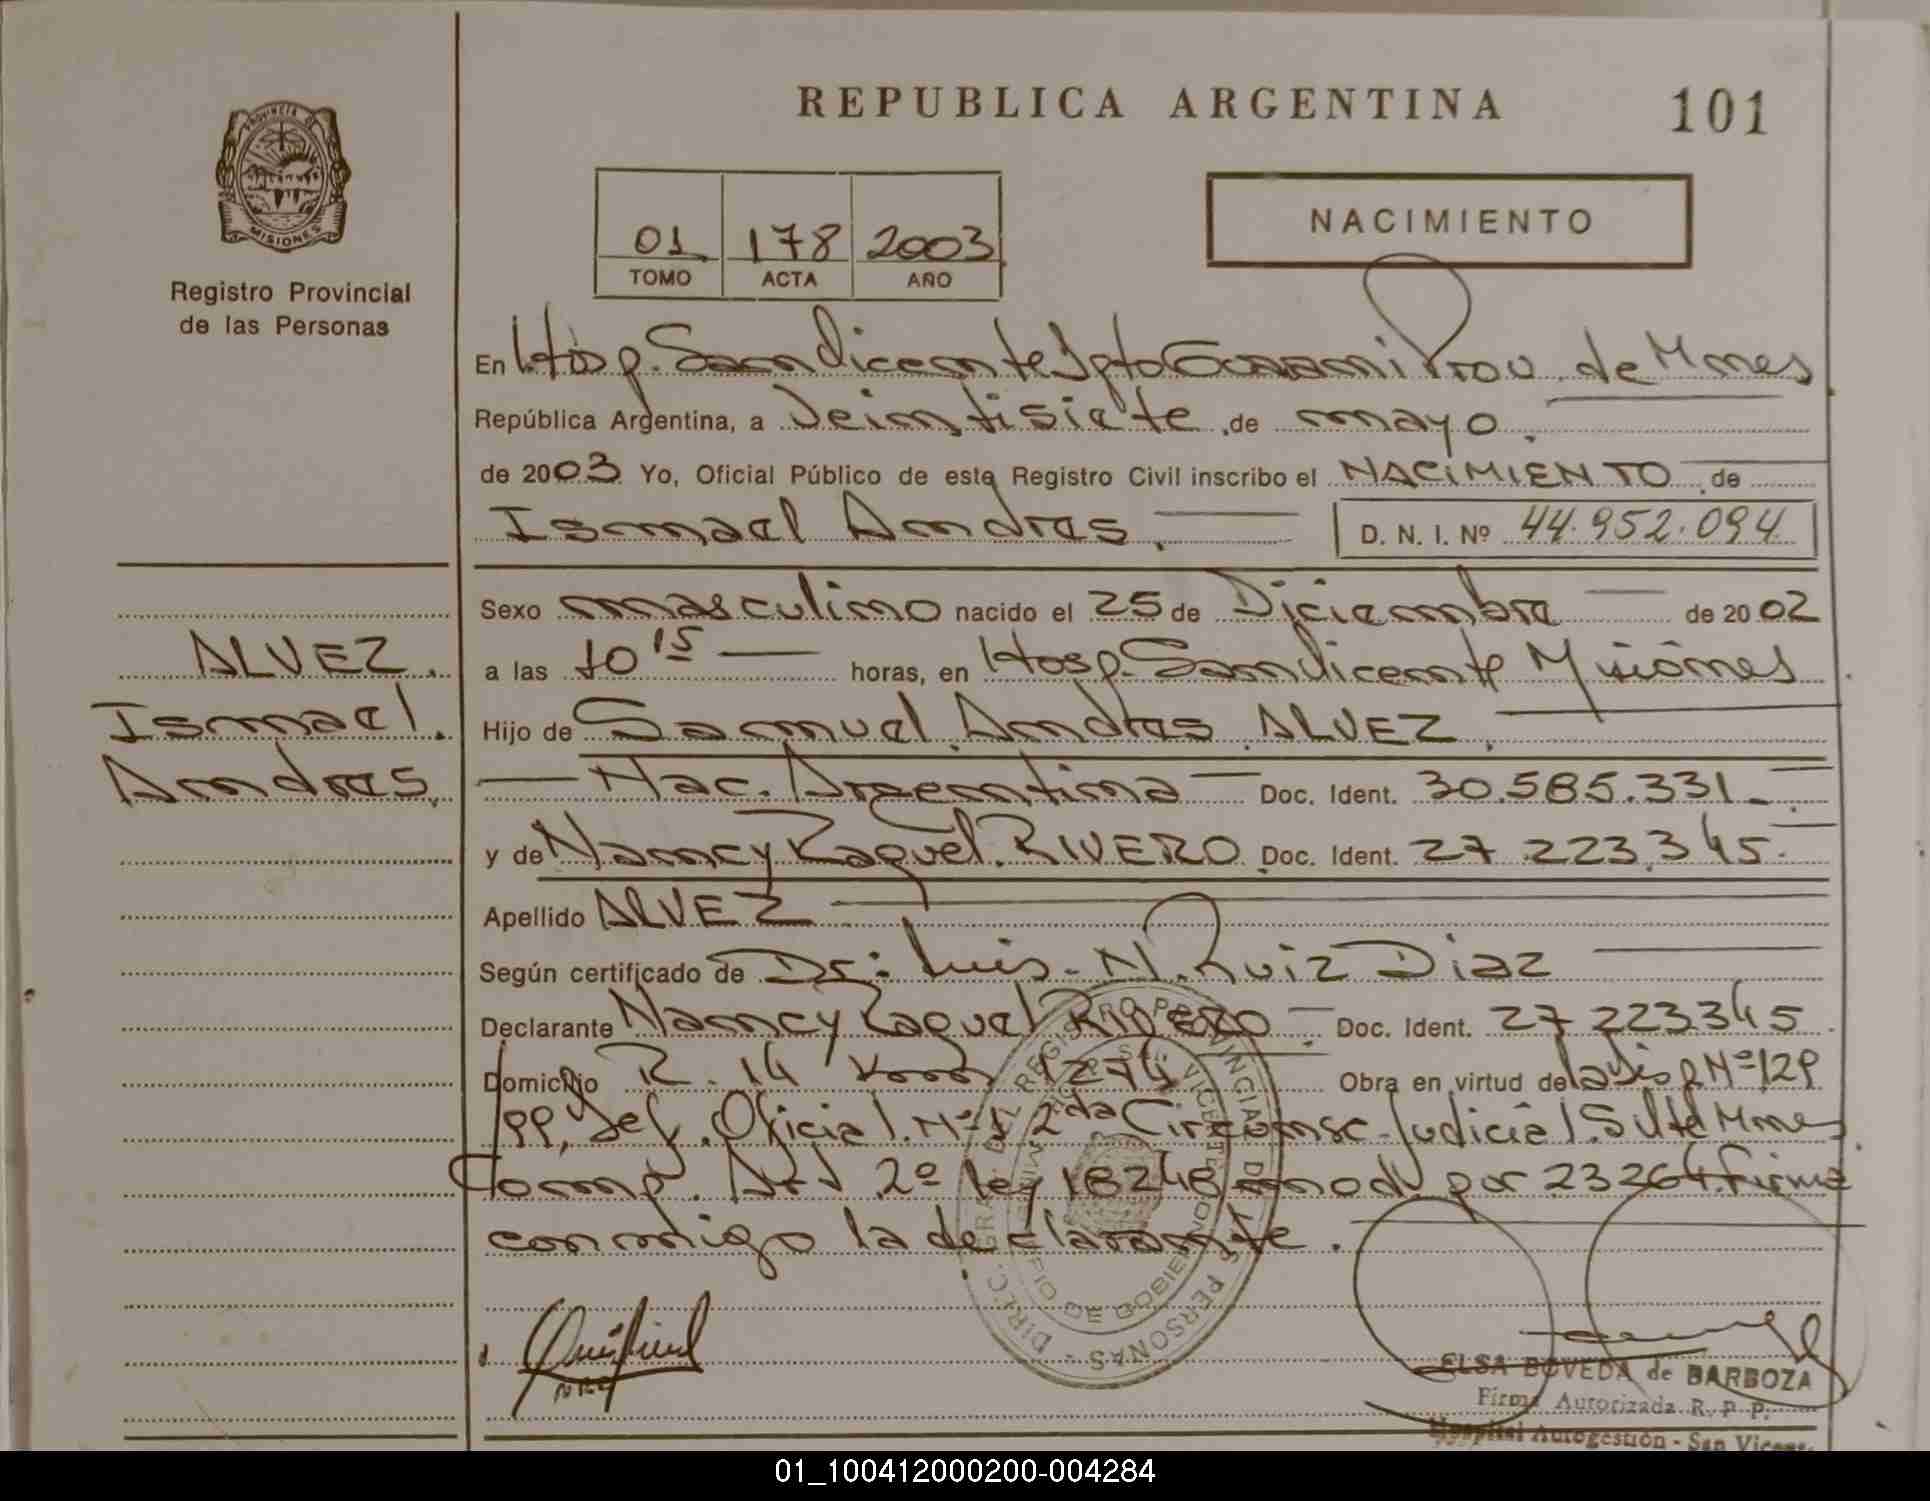 REPUBLICA ARGENTINA
101
PROVINCIA DE
MISIONES
Registro Provincial
de las Personas
01 178 2003
TOMO ACTA AÑO
NACIMIENTO
En Hosp. San Vicente Dpto Guarani Prov. de Mnes
República Argentina, a Veintisiete de mayo.
de 2003 Yo, Oficial Público de este Registro Civil inscribo el NACIMIENTO de
Ismael Andres. D. N. I. Nº 44.952.094
Sexo masculino nacido el 25 de Diciembre de 2002
a las 10 15 horas, en Hosp. San Vicente Misiones
Hijo de Samuel Andres ALVEZ.
Nac. Argentina Doc. Ident. 30.585.331
y de Nancy Raquel RIVERO Doc. Ident. 27 223.345
Apellido ALVEZ
Según certificado de Dr: Luis N. Ruiz Diaz
Declarante Nancy Raquel RIVERO Doc. Ident. 27 223345
Domicilio R. 14 Km 1274 Obra en virtud de la Disp Nº 129
Def. Oficial Nº 1 2da Circunsc. Judicial Mnes
Comp. Art 2º ley 18248 mod por 23264. Firma
conmigo la declarante.
ALVEZ.
Ismael.
Andres.
DIREC. GRAL. DEL REGISTRO PROVINCIAL DE LAS PERSONAS
NRR
ELSA BOVEDA de BARBOZA
Firma Autorizada R. P. P.
Hospital Autogestión - San Vicente
01_100412000200-004284